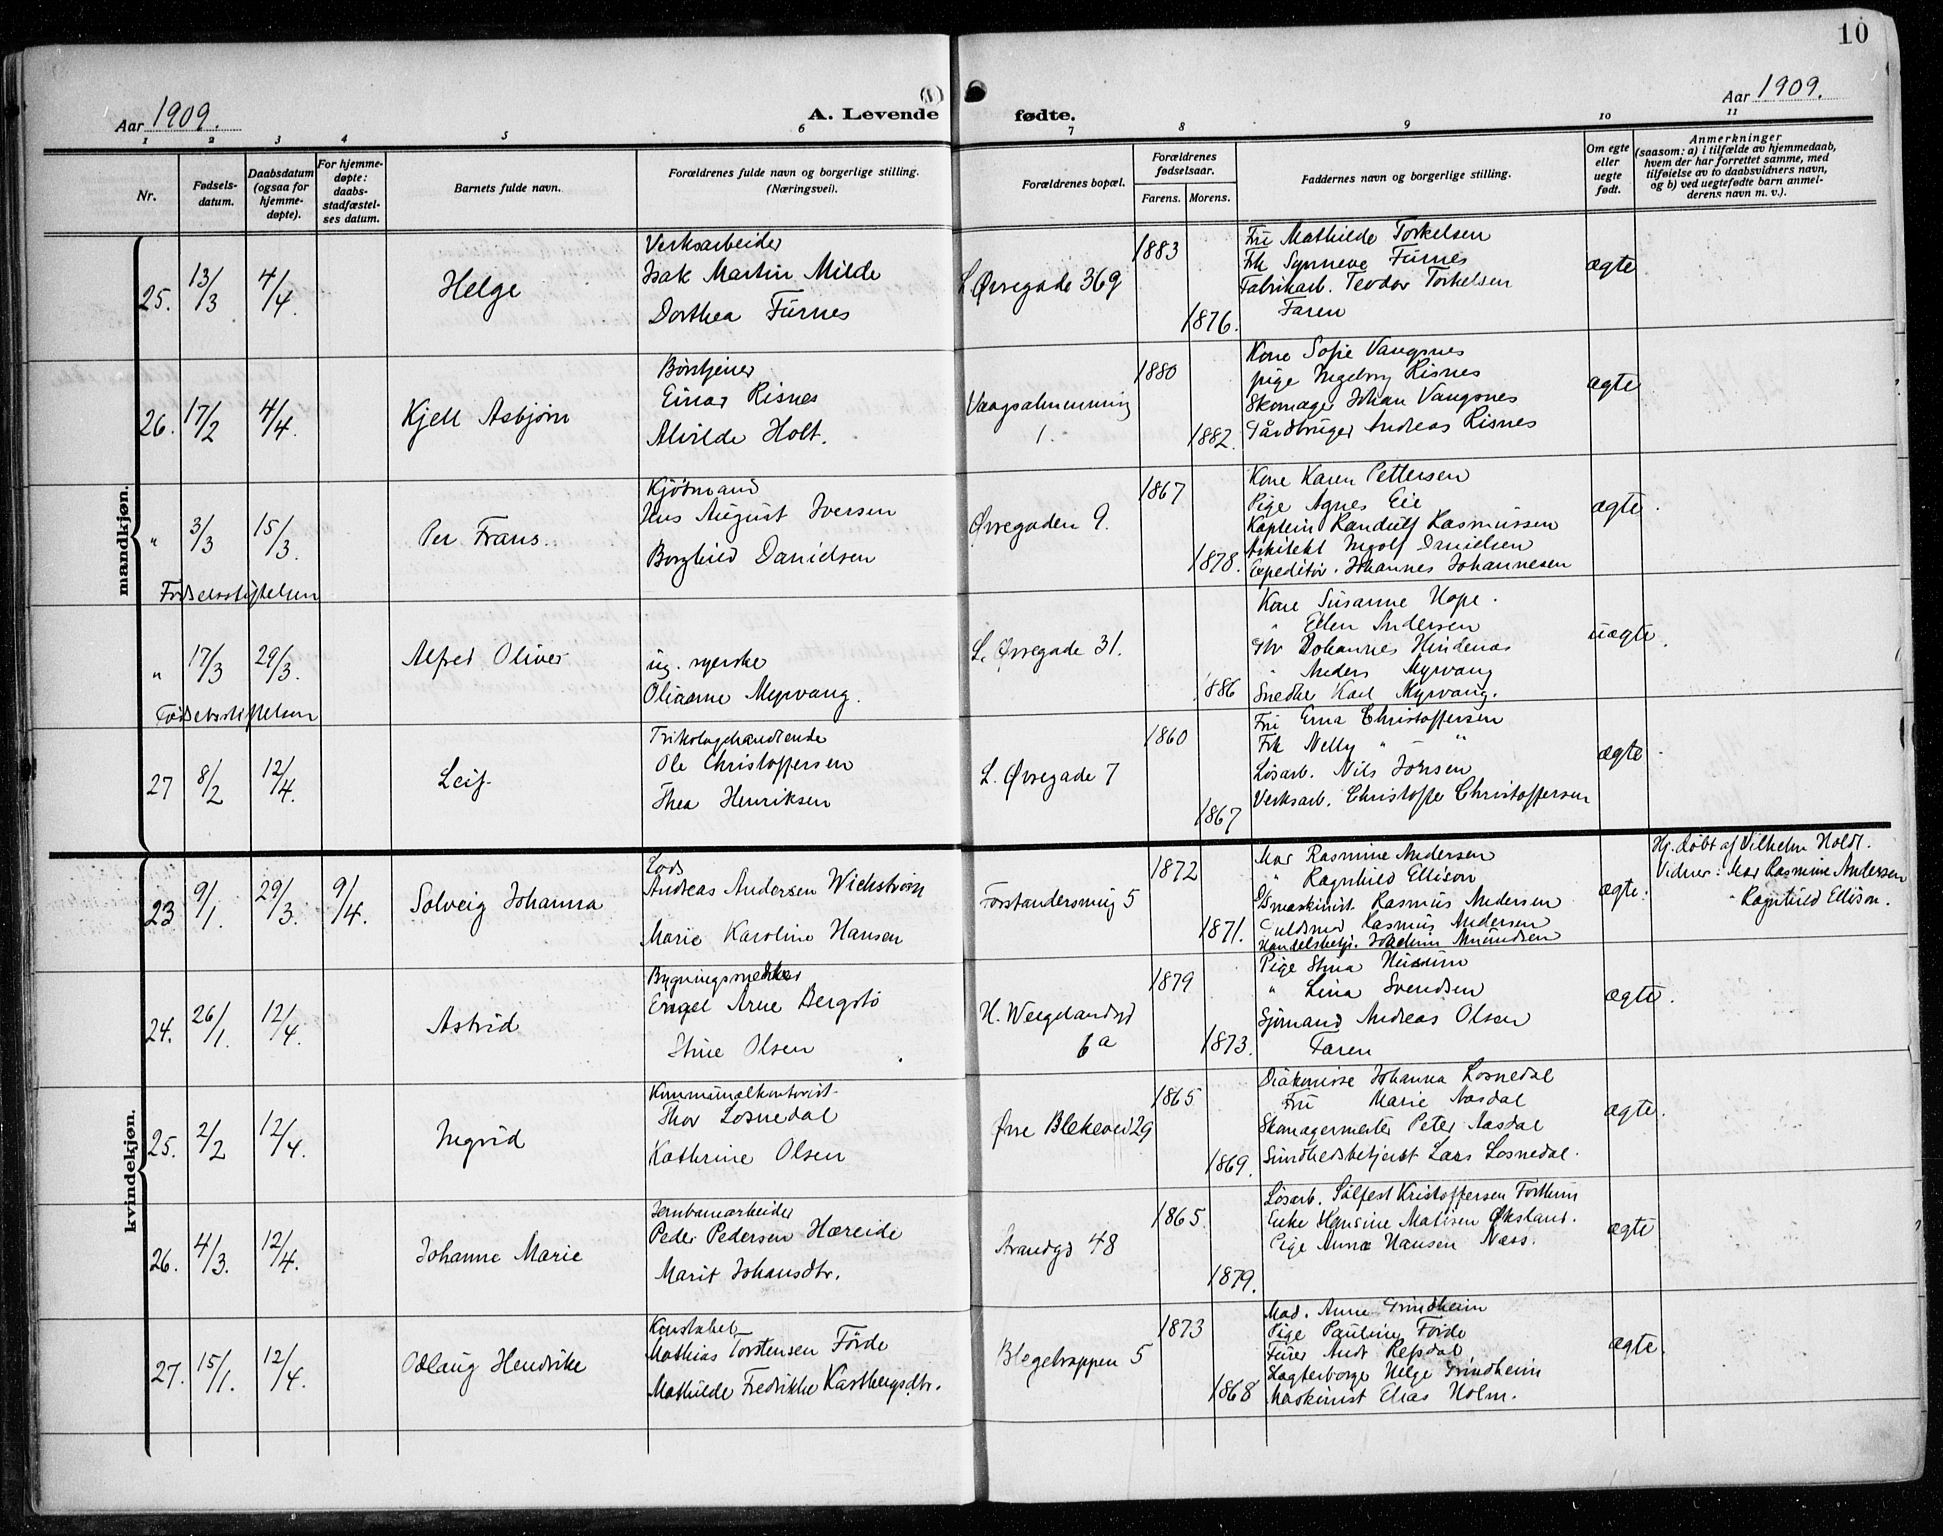 10
Aar 1909.
A. Levende fødte.
Aar 1909.
1 2 3 4 5 6 7 8 9 10 11
Nr.
Fødsels-
datum.
Daabsdatum
(ogsaa for
hjemme-
døpte).
For hjemme-
døpte:
daabs-
stadfæstel-
ses datum.
Barnets fulde navn.
Forældrenes fulde navn og borgerlige stilling.
(Næringsvei).
Forældrenes bopæl.
Forældrenes
fødselsaar.
Farens. Morens.
Faddernes navn og borgerlige stilling.
Om egte
eller
uegte
født.
Anmerkninger
(saasom: a) i tilfælde av hjemmedaab,
hvem der har forrettet samme, med
tilføielse av to daabsvidners navn,
og b) ved uegtefødte barn anmel-
derens navn m. v.).
mandkjøn.
25. 13/3 4/4. Helge
Verksarbeider
Isak Martin Milde
Dorthea Furnes
L. Øvregade 369
1883
1876.
Fru Mathilde Torkelsen
Frk Synneve Furnes
Fabrikarb. Teodor Torkelsen
Faren
ægte
26. 17/2 4/4. Kjell Asbjørn
Einar Risnes
Alvilde Holt.
Vaagsalmenning
1.
1880
1882.
Kone Sofie Vangsnes
pige Ingeborg Risnes
Skomager Johan Vangsnes
Gårdbruger Andreas Risnes
ægte
" 3/3 15/3. Per Frans.
Fødselsstiftelsen
Kjøtmand
Jens August Iversen
Borghild Danielsen
Øvregaden 9.
1867
1878.
Kone Karen Pettersen
Pige Agnes Eie
Kaptein Randulf Rasmussen
Arkitekt Ingolf Danielsen
Expeditør. Johannes Johannesen
ægte.
" 17/3 29/3. Alfred Oliver
Fødselsstiftelsen
ug. syerske
Olianne Myrvang.
L. Øvregade 31.
1886
Kone Susanne Hope.
" Ellen Andersen
Johannes Hindenas
" Anders Myrvang
Snedker Karl Myrvang.
uægte.
27 8/2 12/4. Leif.
Trikotagehandlende
Ole Christoffersen
Thea Henriksen
L. Øvregade 7
1860
1867
Fru Erna Christoffersen
Frk Nelly " - "
Løsarb. Nils Jonsen
Verksarb. Christoffer Christoffersen
ægte.
kvindekjøn.
23 9/1. 29/3. 9/4. Solveig Johanna
Lods
Andreas Andersen Wichstrøm
Marie Karoline Hansen
Forstandersmug 5
1872
1871.
Mad Rasmine Andersen
" Ragnhild Ellison
maskinist. Rasmus Andersen
Rasmus Andersen
Handelsbetj. Joachim Amundsen
ægte.
Hj. døbt af Vilhelm Holdt.
Vidner: Mad Rasmine Andersen
" Ragnhild Ellison.
24. 26/1. 12/4. Astrid
Bygningssnedker
Engel Arne Bergstö
Stine Olsen
H. Wergelandsgd
6a
1879
1873.
Pige Stina
" Lina Svendsen
Sjømand Andreas Olsen
Faren
ægte.
25. 2/2 12/4. Ingrid
Kommunalkontorist.
Thor Losnedal
Kathrine Olsen
Øvre Blekevei 29
1865
1869.
Diakonisse Johanna Losnedal
Fru Marie Aasdal
Skomagermester Peter Aasdal
Sundhedsbetjent Lars Losnedal.
ægte.
26. 4/3. 12/4. Johanne Marie
Jernbanearbeider
Peder Pedersen Hæreide
Marit Johansdtr.
Strandgd 48
1865.
1879.
Løsarb. Sølfest Kristoffersen Fortun
Enke Hansine Matisen Øksland.
Pige Anna Hansen Næss.
ægte
27. 15/1. 12/4. Odlaug Hendrike
Konstabel
Mathias Torstensen Förde
Mathilde Fredrikke Karlbergsdtr.
Blegetrappen 5
1873
1868
Mad. Anne Grindheim
Pige Pauline Förde
Fører Andr Refsdal
Helge Grindheim
Maskinist Elias Holm.
ægte.